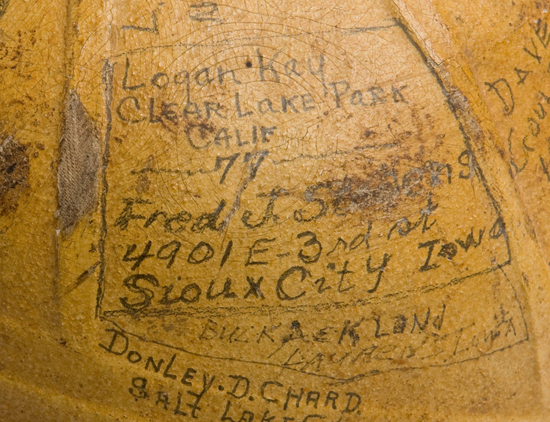 Logan Kay
Clear Lake Park
Calif
77
Fred J.
4901 E-3rd st
Sioux City Iowa
Buck
Donley.D.Chard
Salt Lake
Dave